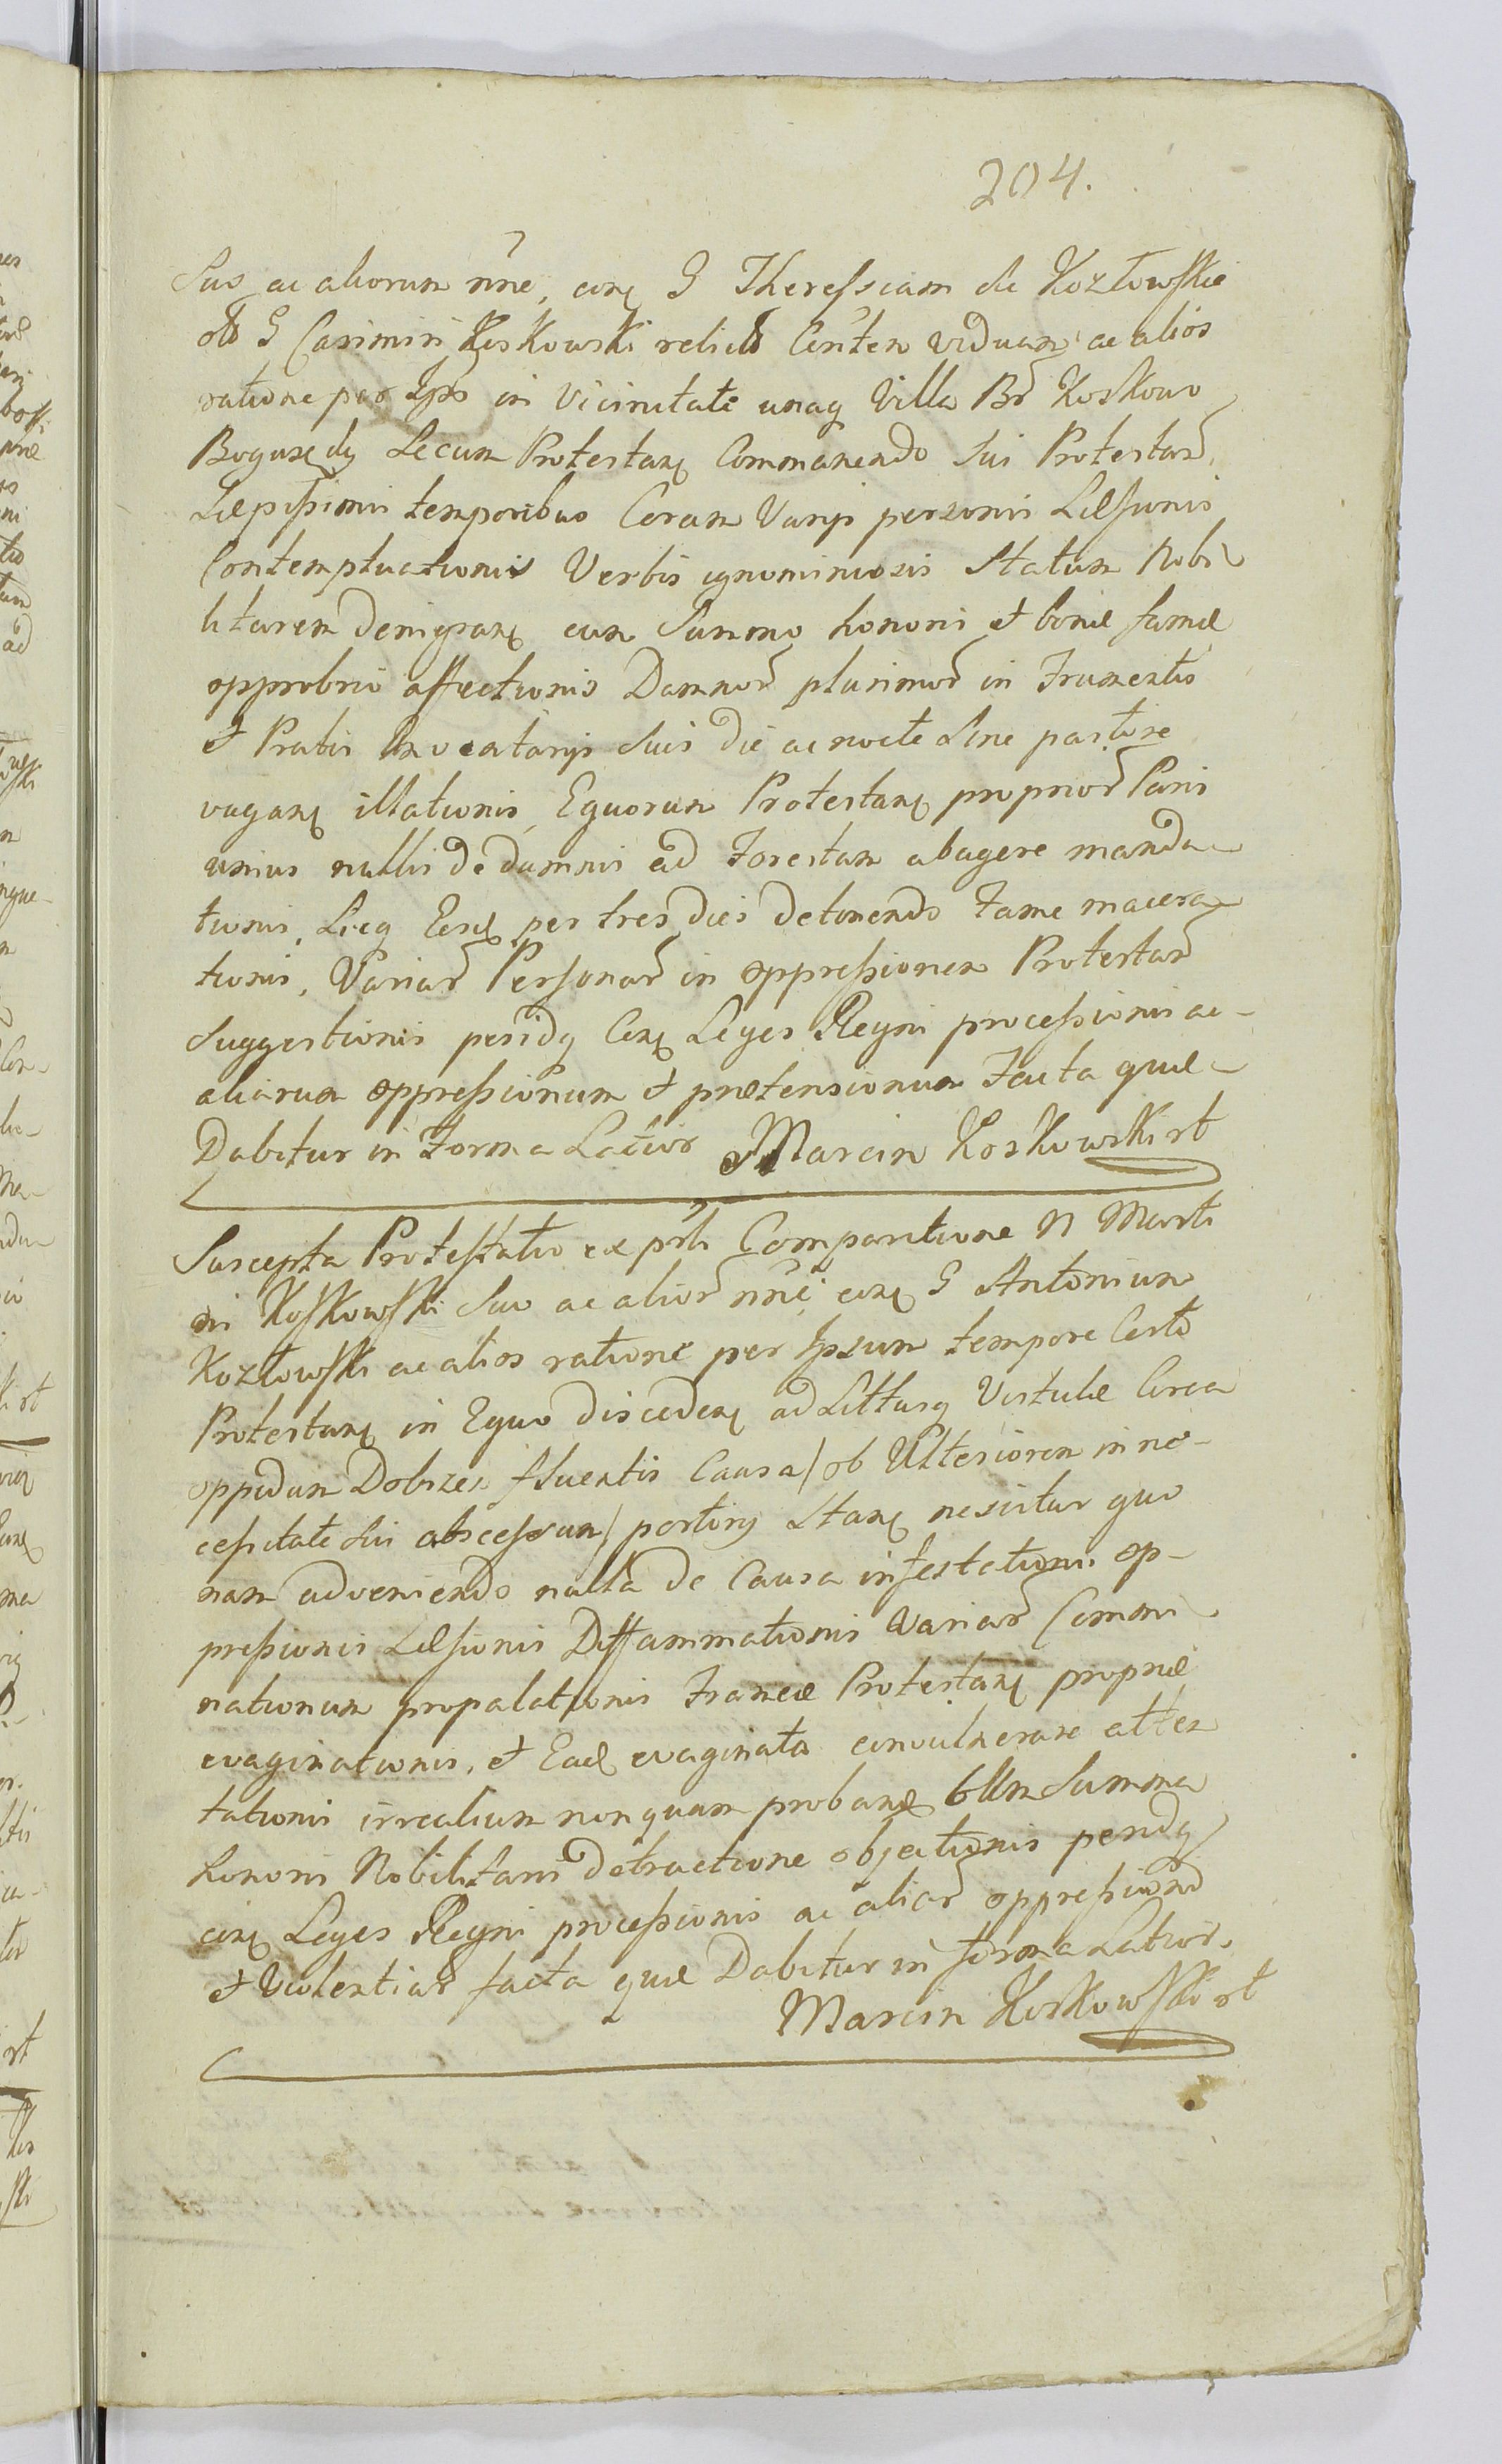 204.
Suo ac aliorum nñe, conq G Theressiam de Kozłowskie
olo G Casimiri Koskowski relictã Coñtem viduam ac alios
ratione per Ips in vicinitate unaq Villa Bõ Koskowo
Bogusędy Secum Protestanq Commanendo sui Protestan
Sæpissimis temporibus Coram Varijs personis Læsionis
Contemptuationis Verbis ignominiosis Statum Nobi-
litarem denigranq cum Summo honoris et bonæ famæ
opprobrio affectionis Damnor plurimor in Frumentis
et Pratis Inventarijs suis die ac nocte sine pastore
vaganq illationis, Equorum Protestanq proprior Paris
unius nullis de damnis ad Forestam abagere manda-
tionis, Sicq Eosq per tres dies detinendo Fame macera-
tionis, Variar Personar in oppressionem Protestan
Suggestionis peridq Conq Leges Regni processionis ac-
aliarum oppressionum et prætensionum Facta quæ-
Dabitur in Forma Latior Marcin Koskowski rt
Suscepta Protestatio ex prsli Comparitione N Marti
ni Koskowski suo ac alior nñe conq G Antonium
Kozłowski ac alios ratione per Ipsum tempore Certo
Protestanq in Equo discedenq ad Littusq Vistulæ Circa
oppidum Dobrzen fluentis Causa / ob Ulteriorem in ne-
cessitate sui abscessum / portiry Stanq nescitur quo
nam adveniendo nulla de Causa infestationis op-
pressionis Læsionis Diffammationis Variar Commi-
nationum propalationis Frameæ Protestanq propriæ
evaginationis, et Eadq evaginata convulnerare atten
tationis irrealium nonquam probanq cum Summa
honoris Nobilitaris detractione objectionis peridq
conq Leges Regni processionis ac aliar oppression
et Violentiar facta quæ Dabitur in forma Latior.
Marcin Koskowski rt